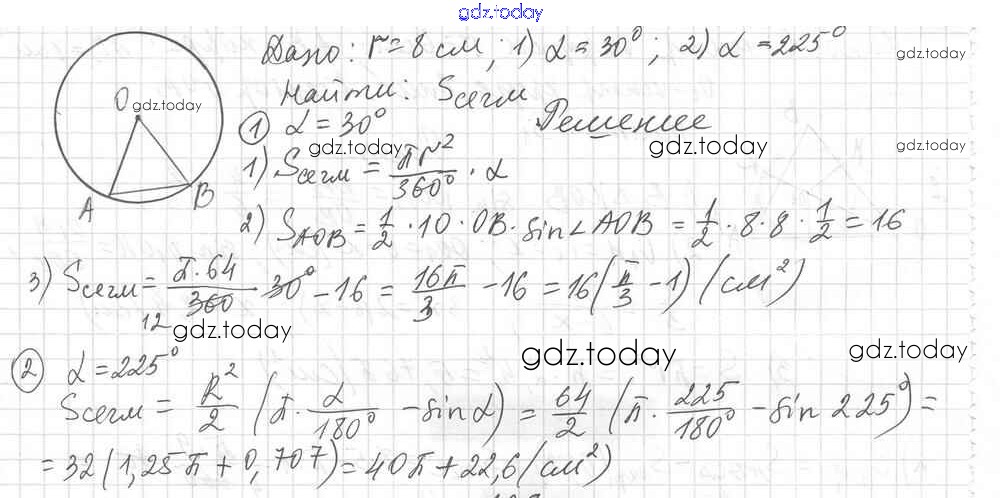 gdz.today
Дано: r = 8 см; 1) α = 30°; 2) α = 225° gdz.today
Найти: Sсегм
O gdz.today
① α = 30° Решение
gdz.today gdz.today gdz.today
1) Sсегм = πr²/360° · α
A B
2) SAOB = 1/2 · 10 · OB · sin∠AOB = 1/2 · 8 · 8 · 1/2 = 16
3) Sсегм = π·64/360 · 30° - 16 = 16π/3 - 16 = 16(π/3 - 1) (см²)
12 gdz.today
gdz.today gdz.today
② α = 225°
Sсегм = R²/2 (π · α/180° - sin α) = 64/2 (π · 225/180° - sin 225°) =
= 32 (1,25π + 0,707) = 40π + 22,6 (см²)